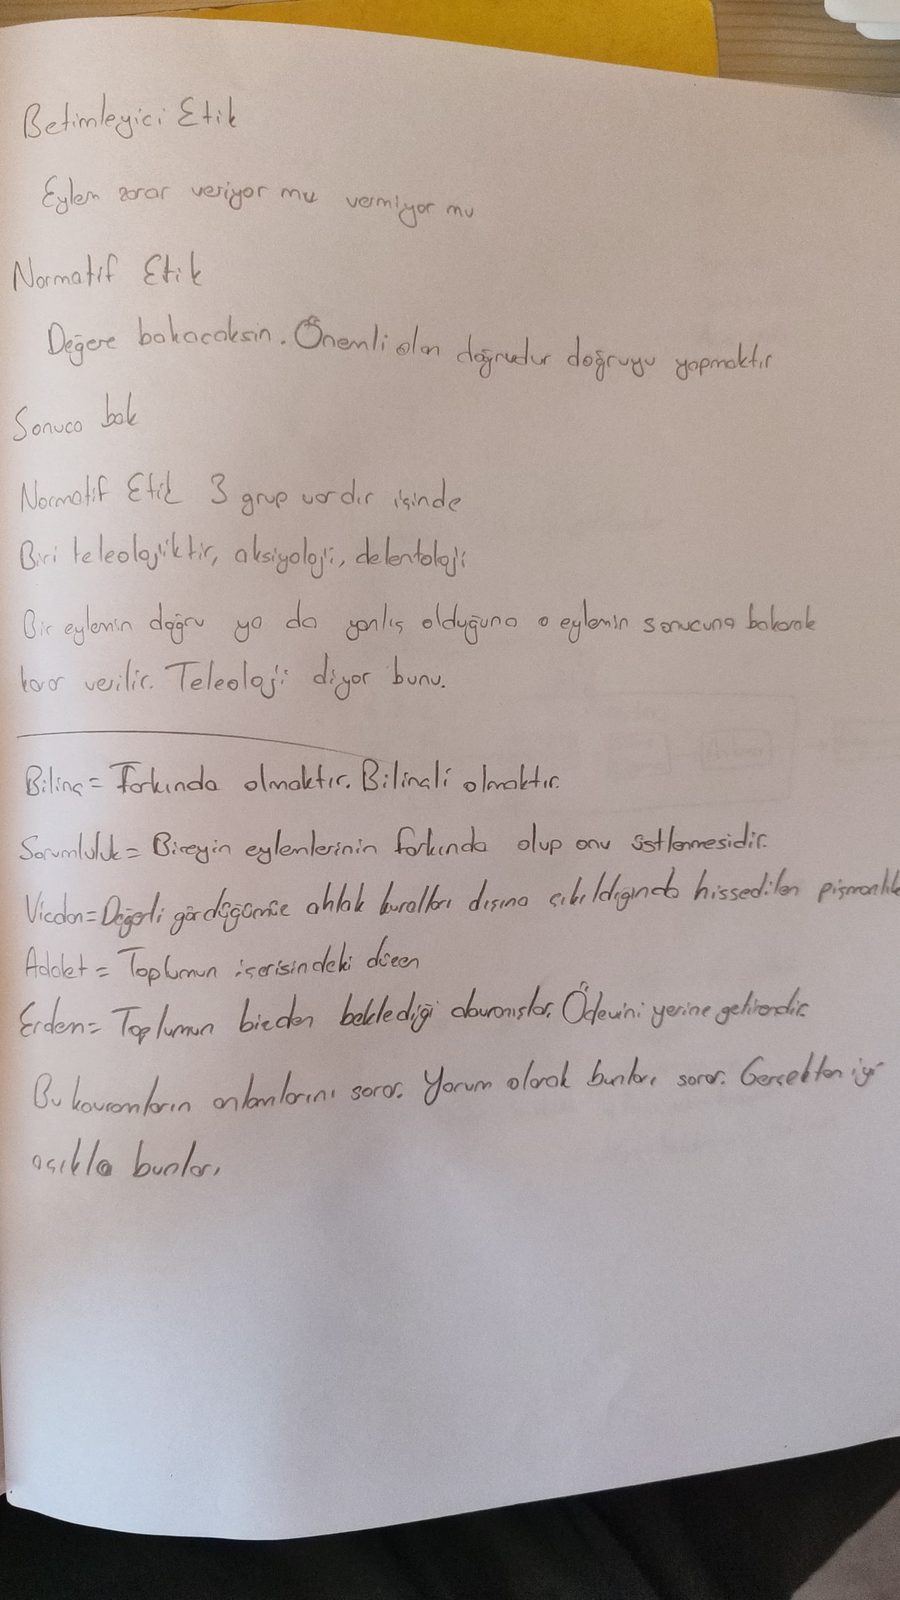 Betimleyici Etik
Eylem zarar veriyor mu vermiyor mu
Normatif Etik
Değere bakacaksın. Önemli olan doğrudur doğruyu yapmaktır
Sonuca bak
Normatif Etik 3 grup vardır içinde
Biri teleolojiktir, aksiyoloji, delentoloji
Bir eylemin doğru ya da yanlış olduğuna o eylemin sonucuna bakarak
karar verilir. Teleoloji diyor bunu.
Bilinç = Farkında olmaktır. Bilinçli olmaktır.
Sorumluluk = Bireyin eylemlerinin farkında olup onu üstlenmesidir.
Vicdan = Değerli gördüğümüz ahlak kuralları dışına çıkıldığında hissedilen pişmanlık
Adalet = Toplumun içerisindeki düzen
Erdem = Toplumun bizden beklediği davranışlar. Ödevini yerine getirendir.
Bu kavramların anlamlarını sorar. Yorum olarak bunları sorar. Gerçekten iyi
açıkla bunları